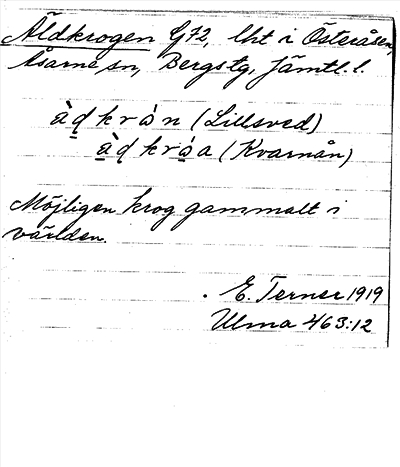 Äldkrogen G72, lht i Österåsen,
Åsarne sn, Bergs tg, Jämtl. l.
àd̥krò̱n (Lillsved)
å̱̀d̥krå̱a (Kvarnån)
Möjligen krog gammalt i
världen.
E. Terner 1919
Ulma 463:12